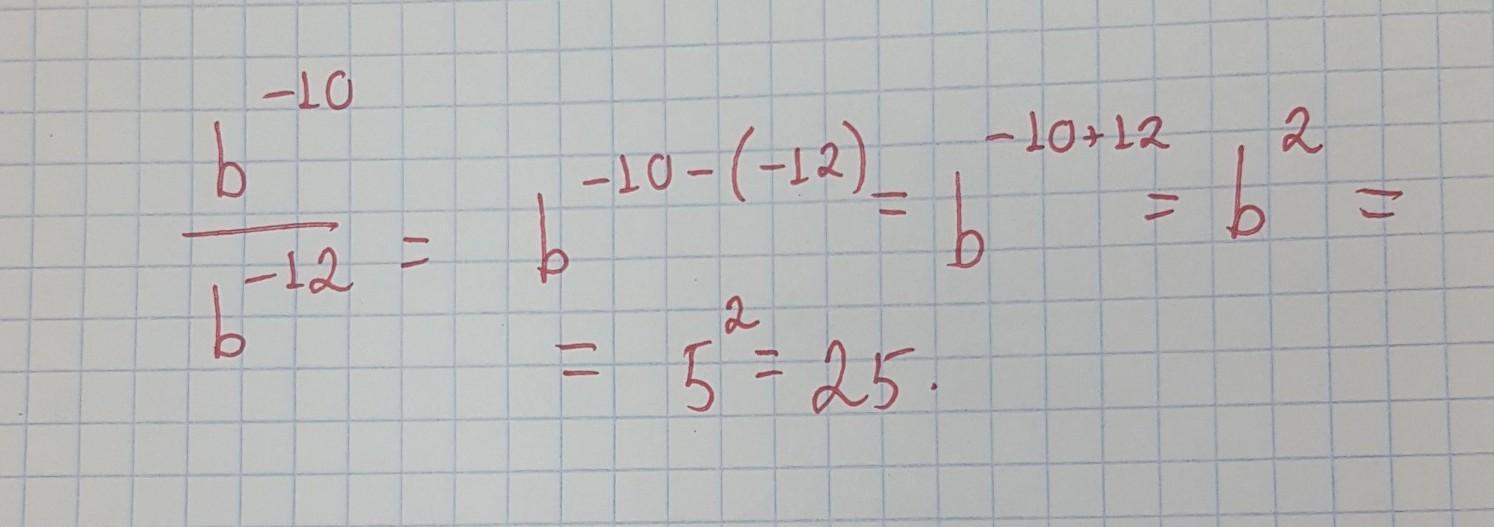 b^-10 / b^-12 = b^-10-(-12) = b^-10+12 = b^2 =
= 5^2 = 25.